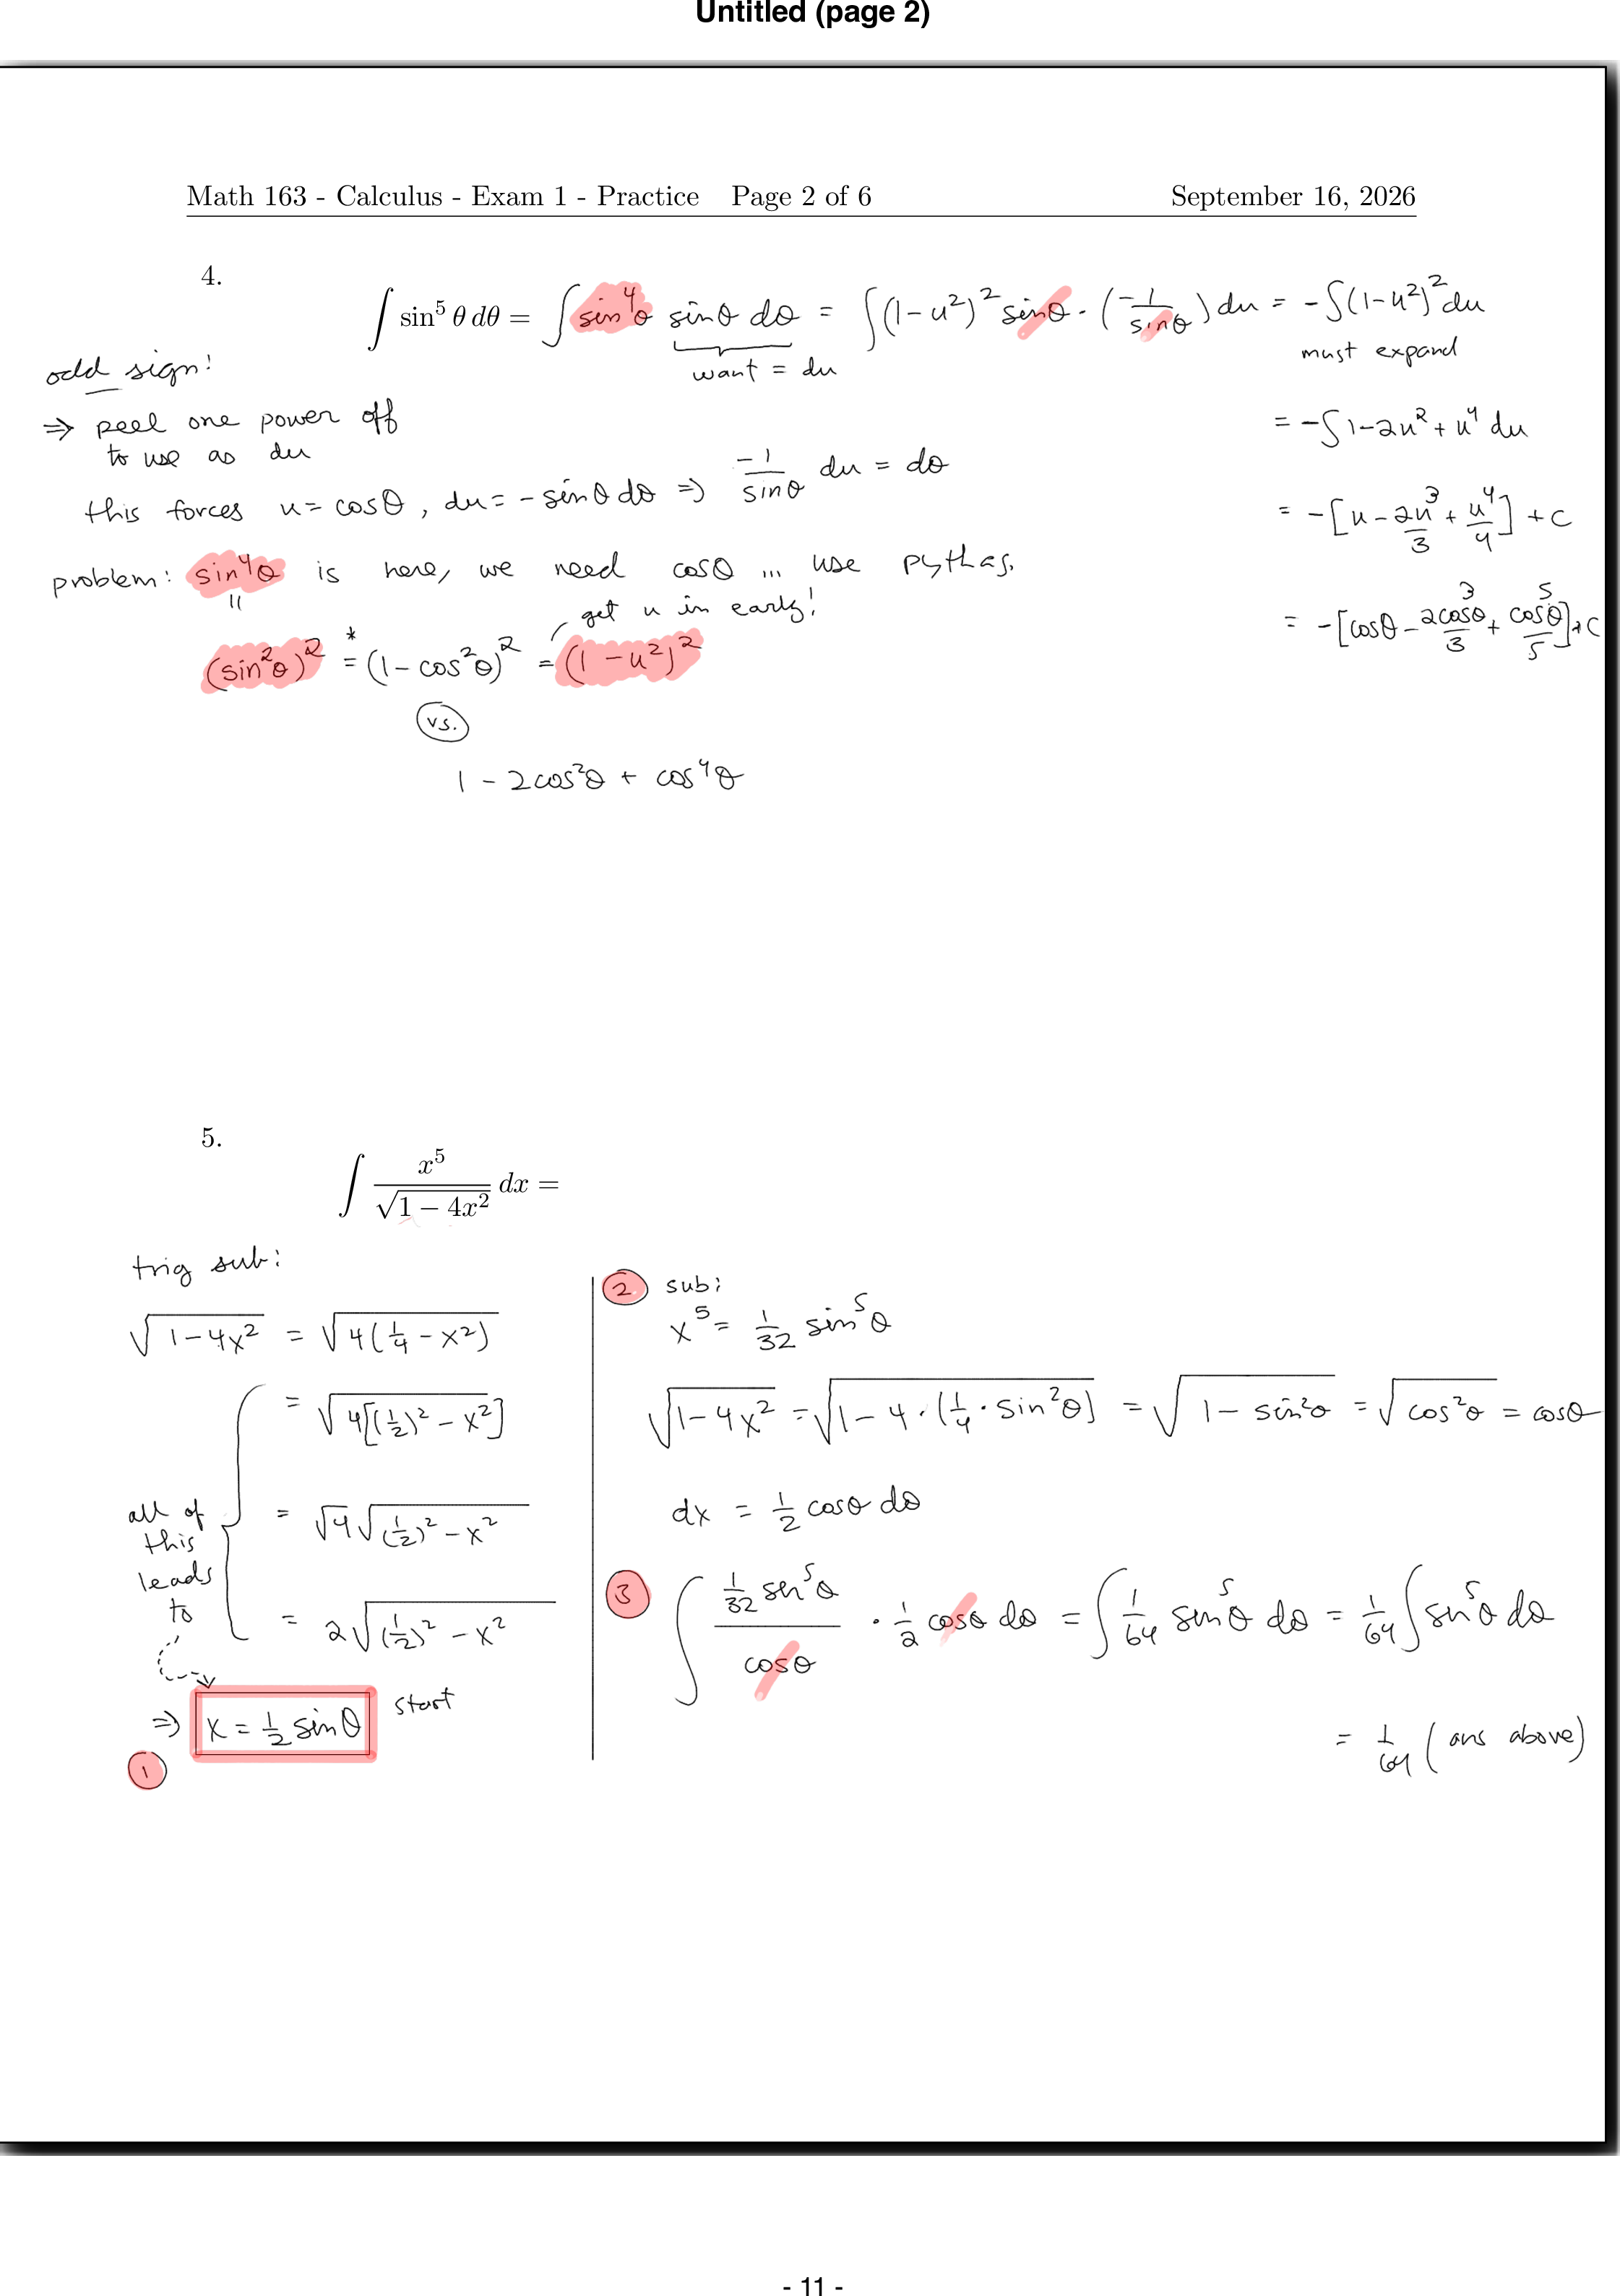 Untitled (page 2)
Math 163 - Calculus - Exam 1 - Practice Page 2 of 6 September 16, 2026
4.
∫ sin⁵ θ dθ = ∫ sin⁴θ sinθ dθ = ∫(1-u²)² sinθ · (-1/sinθ) du = -∫(1-u²)² du
want = du
must expand
odd sign!
⇒ peel one power off
to use as du
= -∫ 1-2u² + u⁴ du
this forces u = cosθ, du = -sinθ dθ ⇒ -1/sinθ du = dθ
= -[u - 2u³/3 + u⁴/4] + C
problem: sin⁴θ is here, we need cosθ ... use pythag.
"
get u in early!
= -[cosθ - 2cos³θ/3 + cos⁵θ/5] + C
(sin²θ)² *= (1-cos²θ)² = (1-u²)²
vs.
1 - 2cos²θ + cos⁴θ
5.
∫ x⁵/√(1 - 4x²) dx =
trig sub:
√(1-4x²) = √(4(1/4 - x²))
= √(4[(1/2)² - x²])
= √4 √((1/2)² - x²)
= 2√((1/2)² - x²)
all of
this
leads
to
⇒ x = 1/2 sinθ start
①
② sub:
x⁵ = 1/32 sin⁵θ
√(1-4x²) = √(1-4·(1/4·sin²θ)) = √(1-sin²θ) = √(cos²θ) = cosθ
dx = 1/2 cosθ dθ
③ ∫ (1/32 sin⁵θ)/cosθ · 1/2 cosθ dθ = ∫ 1/64 sin⁵θ dθ = 1/64 ∫ sin⁵θ dθ
= 1/64 (ans above)
- 11 -